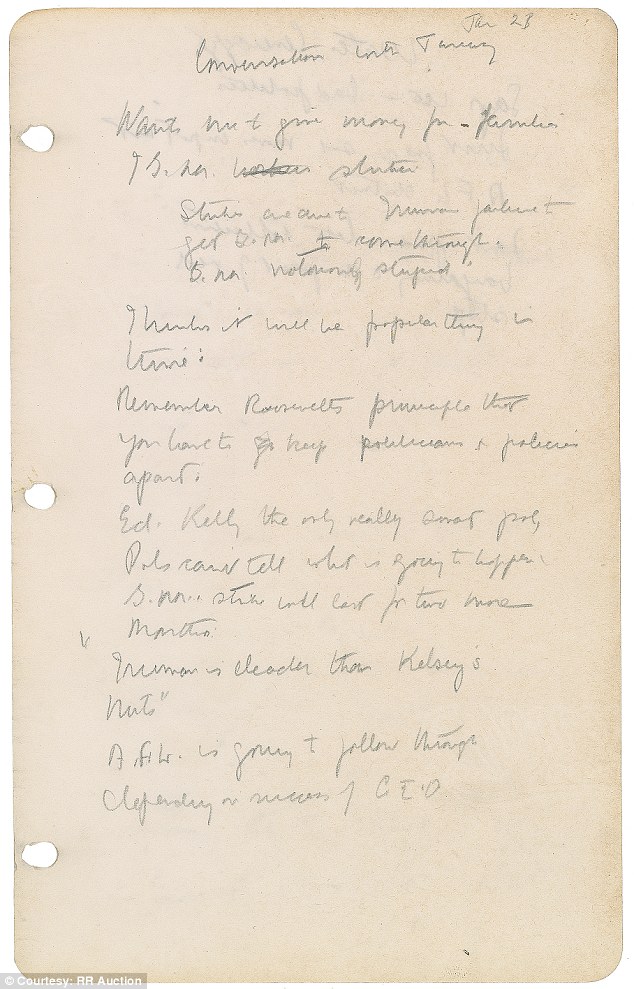 Jan 23
Conversation with
Wants me to give money for - families
of G.M. strikers
Strikes are over Truman failure to
get G.M. to come through.
G.M. notoriously stupid
Thinks it will be popular thing in
time.
Remember Roosevelts principle that
you have to keep politicians & policies
apart.
Ed. Kelly the only really smart pol,
Pols cannot tell what is going to happen.
G.M. strike will last for two more
months.
"Truman is deader than Kelsey's
Nuts"
A.F.L. is going to follow through
depending on success of C.I.O
© Courtesy: RR Auction